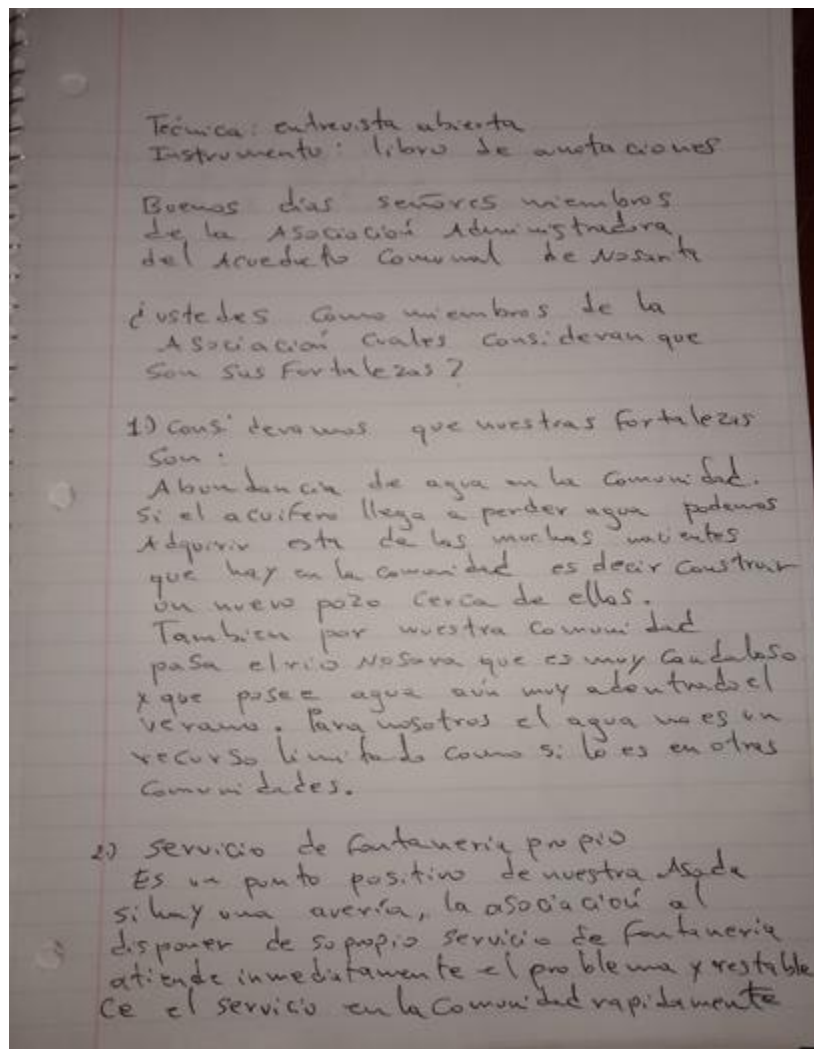 Técnica: entrevista abierta
Instrumento: libro de anotaciones
Buenos días señores miembros
de la Asociación Administradora
del Acueducto Comunal de
¿ustedes como miembros de la
Asociación cuales consideran que
son sus Fortalezas?
1) consideramos que nuestras fortalezas
son:
Abundancia de agua en la comunidad.
si el acuífero llega a perder agua podemos
Adquirir esta de las muchas nacientes
que hay en la comunidad es decir construir
un nuevo pozo cerca de ellas.
Tambien por nuestra comunidad
pasa el río Nosara que es muy caudaloso
y que posee agua aún muy adentrado el
verano. Para nosotros el agua no es un
recurso limitado como si lo es en otras
comunidades.
2) servicio de fontanería propio
Es un punto positivo de nuestra Asada
si hay una avería, la asociación al
disponer de su propio servicio de fontanería
atiende inmediatamente el problema y restable
ce el servicio en la comunidad rapidamente